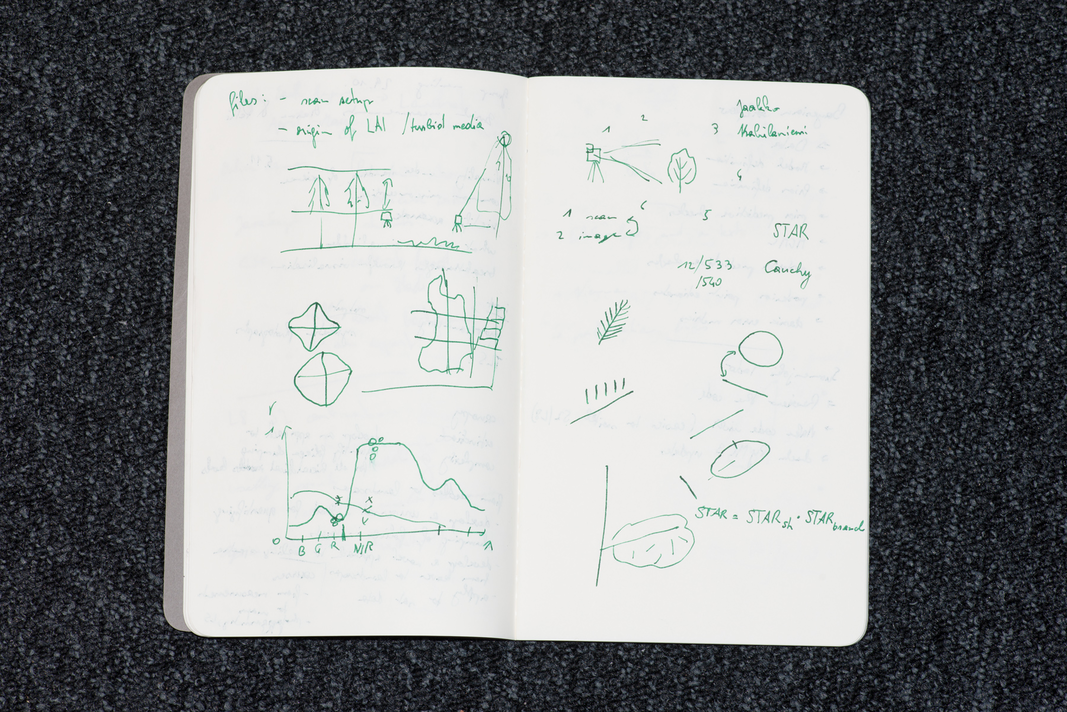 files: - scan setup
- origin of LAI / turbid media
r
1
0
B G R NIR λ
Jaakko
Kahilaniemi
1
2
3
4
1 scan
2 image
6
5
STAR
12/533
/540
Cauchy
STAR = STAR sh · STAR branch